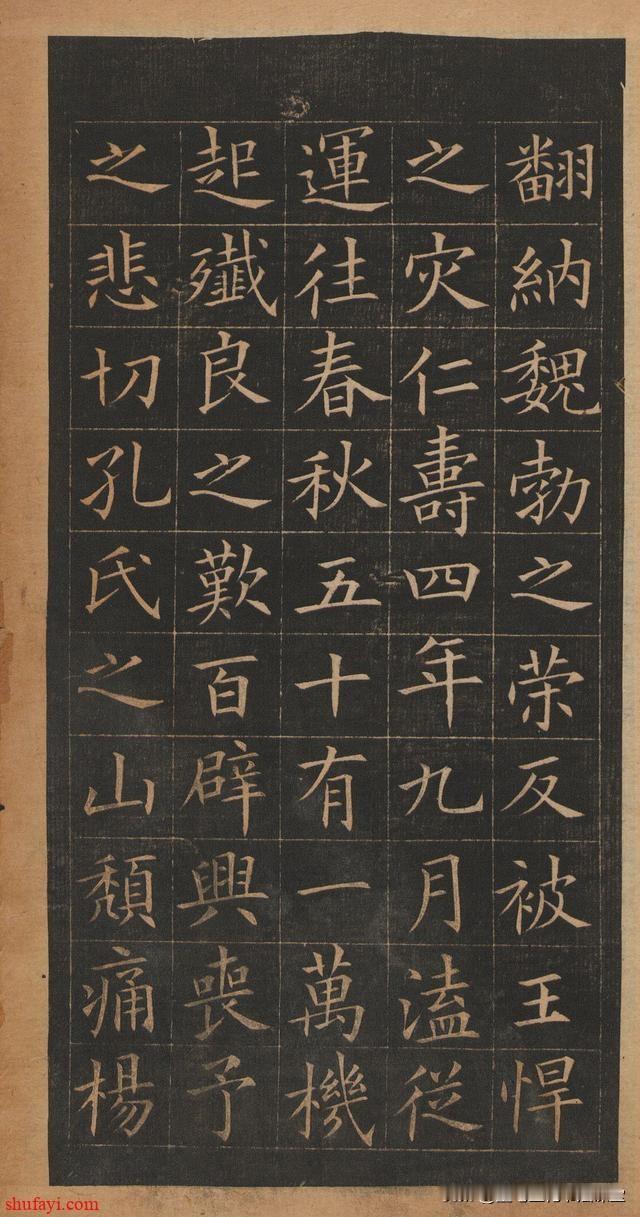 翻納魏勃之荣反被王悍
之灾仁壽四年九月溘從
運往春秋五十有一萬機
起殲良之歎百辟興喪予
之悲切孔氏之山頹痛楊
shufayi.com